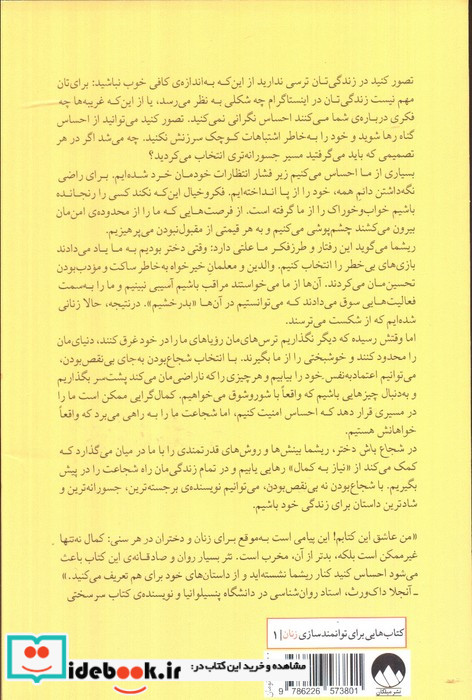 تصور کنید در زندگی‌تان ترسی ندارید از این‌که به‌اندازه‌ی کافی خوب نباشید: برای‌تان
مهم نیست زندگی‌تان در اینستاگرام چه شکلی به نظر می‌رسد، یا از این‌که غریبه‌ها چه
فکری درباره‌ی شما می‌کنند احساس نگرانی نمی‌کنید. تصور کنید می‌توانید از احساس
گناه رها شوید و خود را به‌خاطر اشتباهات کوچک سرزنش نکنید. چه می‌شد اگر در هر
تصمیمی که باید می‌گرفتید مسیر جسورانه‌تری انتخاب می‌کردید؟
بسیاری از ما احساس می‌کنیم زیر فشار انتظارات خودمان خرد شده‌ایم. برای راضی
نگه‌داشتن دائم همه، خود را از پا انداخته‌ایم. فکروخیال این‌که نکند کسی را رنجانده
باشیم خواب‌وخوراک را از ما گرفته است. از فرصت‌هایی که ما را از محدوده‌ی امن‌مان
بیرون می‌کشند چشم‌پوشی می‌کنیم و به هر قیمتی از مقبول‌نبودن می‌پرهیزیم.
ریشما می‌گوید این رفتار و طرزفکر ما علتی دارد: وقتی دختر بودیم به ما یاد می‌دادند
بازی‌های بی‌خطر را انتخاب کنیم. والدین و معلمان خیرخواه به‌خاطر ساکت و مؤدب‌بودن
تحسین‌مان می‌کردند. آن‌ها از ما می‌خواستند مراقب باشیم آسیبی نبینیم و ما را به‌سمت
فعالیت‌هایی سوق می‌دادند که می‌توانستیم در آن‌ها «بدرخشیم». درنتیجه، حالا زنانی
شده‌ایم که از شکست می‌ترسند.
اما وقتش رسیده که دیگر نگذاریم ترس‌های‌مان رؤیاهای ما را در خود غرق کنند، دنیای‌مان
را محدود کنند و خوشبختی را از ما بگیرند. با انتخاب شجاع‌بودن به‌جای بی‌نقص‌بودن،
می‌توانیم اعتمادبه‌نفس خود را بیابیم و هرچیزی را که ناراضی‌مان می‌کند پشت‌سر بگذاریم و
به‌دنبال چیزهایی باشیم که واقعاً با شوروشوق می‌خواهیم. کمال‌گرایی ممکن است ما را
در مسیری قرار دهد که احساس امنیت کنیم، اما شجاعت ما را به راهی می‌برد که واقعاً
خواهانش هستیم.
در شجاع باش دختر، ریشما بینش‌ها و روش‌های قدرتمندی را با ما در میان می‌گذارد که
کمک می‌کند از «نیاز به کمال» رهایی یابیم و در تمام زندگی‌مان راه شجاعت را در پیش
بگیریم. با شجاع‌بودن نه بی‌نقص‌بودن، می‌توانیم نویسنده‌ی برجسته‌ترین، جسورانه‌ترین و
شادترین داستان برای زندگی خود باشیم.
«من عاشق این کتابم! این پیامی است به‌موقع برای زنان و دختران در هر سنی: کمال نه‌تنها
غیرممکن است بلکه، بدتر از آن، مخرب است. نثر بسیار روان و صادقانه‌ی این کتاب باعث
می‌شود احساس کنید کنار ریشما نشسته‌اید و از داستان‌های خود برای هم تعریف می‌کنید.»
ــ آنجلا داک‌ورث، استاد روان‌شناسی در دانشگاه پنسیلوانیا و نویسنده‌ی کتاب سرسختی
کتاب‌هایی برای توانمندسازی زنان | ۱
مشاهده و خرید این کتاب در:
idebook.ir
9 786226 573801
تومان
نشر میلکان